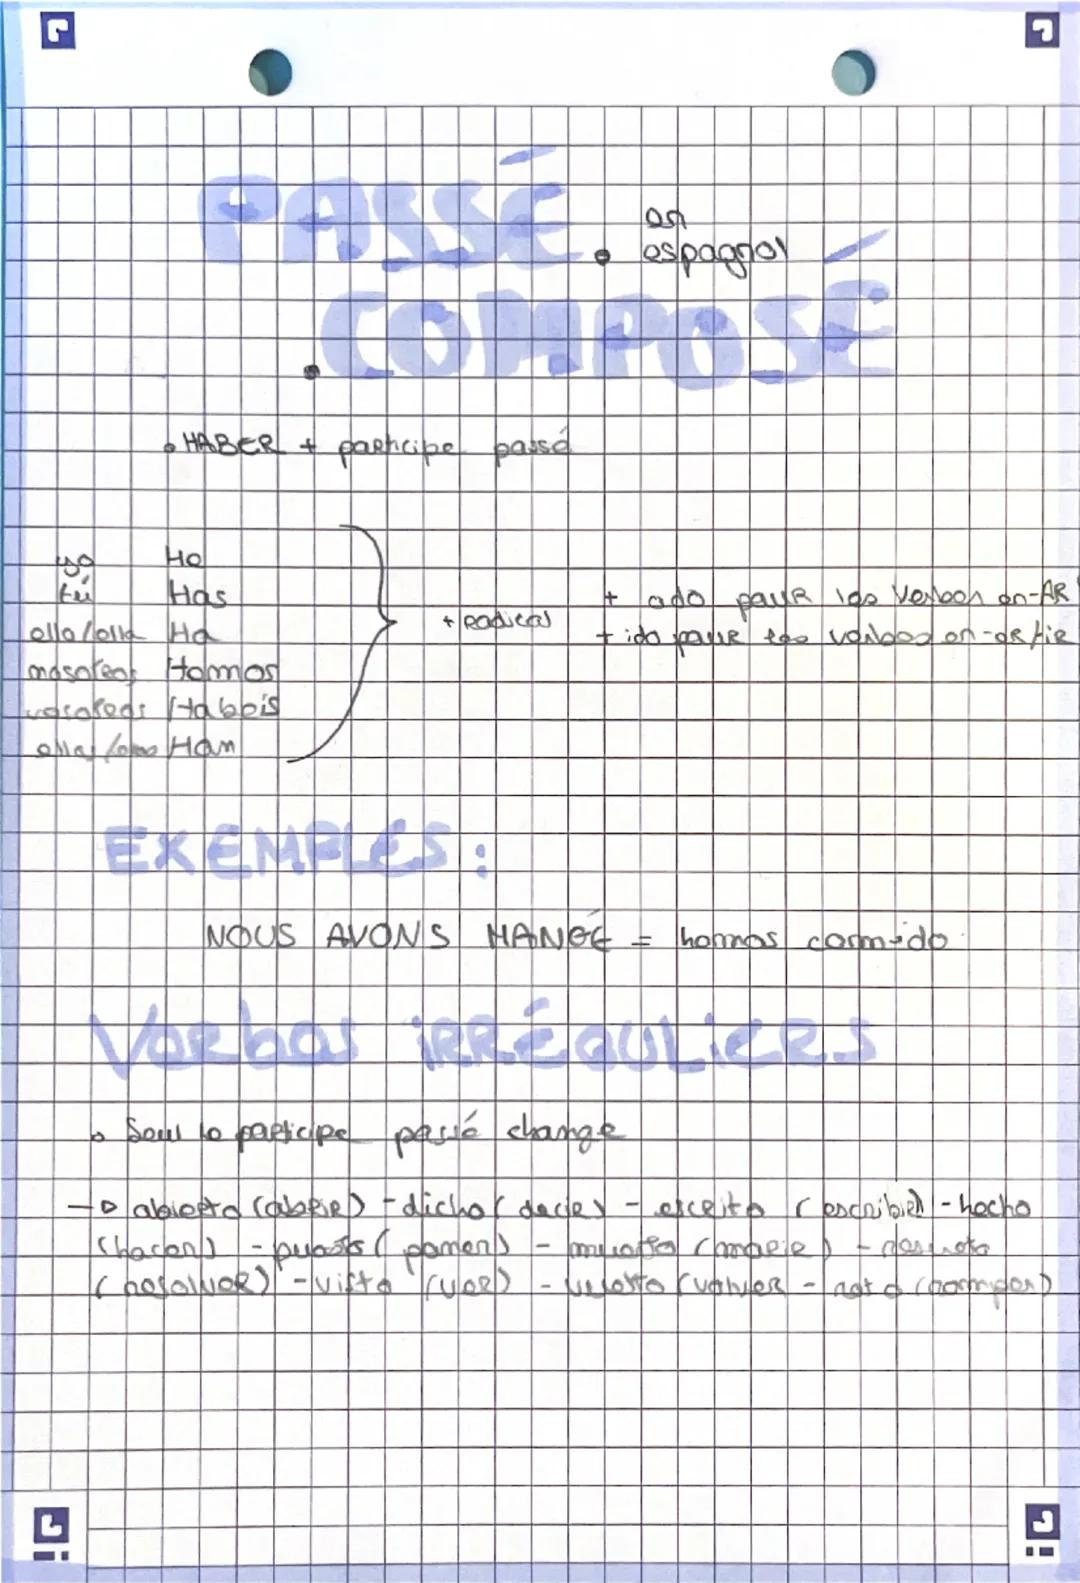 PASSÉ
en
espagnol
COMPOSÉ
• HABER + participe passé
yo He
tú Has
ello/ella Ha
nosotros Hemos
vosotros Habéis
ellas/ellos Han
+ radical
+ ado pour les verbes en -AR
+ ido pour les verbes en -er/ir
EXEMPLES :
NOUS AVONS MANGÉ = hemos comido
Verbes irréguliers
• Seul le participe passé change
→ abierto (abrir) - dicho (decir) - escrito (escribir) - hecho
(hacer) - puesto (poner) - muerto (morir) - resuelto
(resolver) - visto (ver) - vuelto (volver - roto (romper)